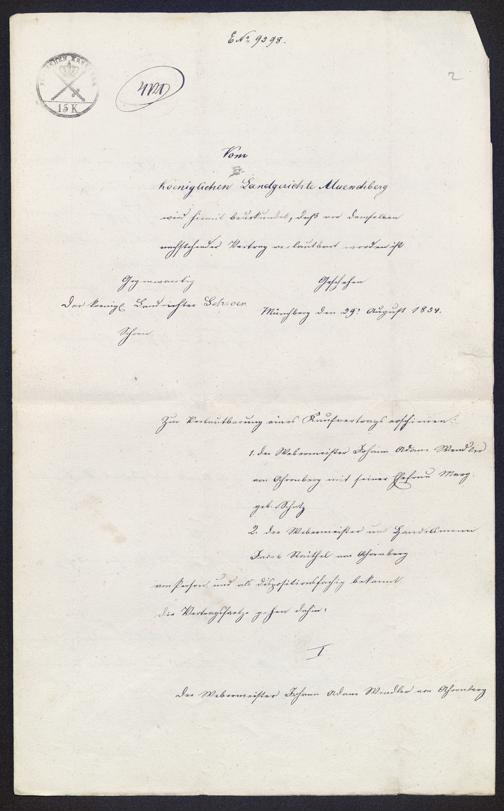 E. No. 9398.
2
15 K
Vom
Koeniglichen Landgerichte Muenchberg
wird hiemit beurkundet, daß vor demselben
nachstehender Vertrag verlautbart worden ist
Gegenwärtig
Geschehen
Der koenigl. Landrichter
Münchberg den 29t August 1854.
Zur Verlautbarung eines Kaufvertrags erschienen:
1. der Webermeister Johann Adam Wendler
von Ahornberg mit seiner Ehefrau Marg.
geb.
2. der Webermeister und Handelsmann
von Ahornberg
von Person und als dispositionsfähig bekannt
die Vertragssätze gehen dahin:
I
Der Webermeister Johann Adam Wendler von Ahornberg